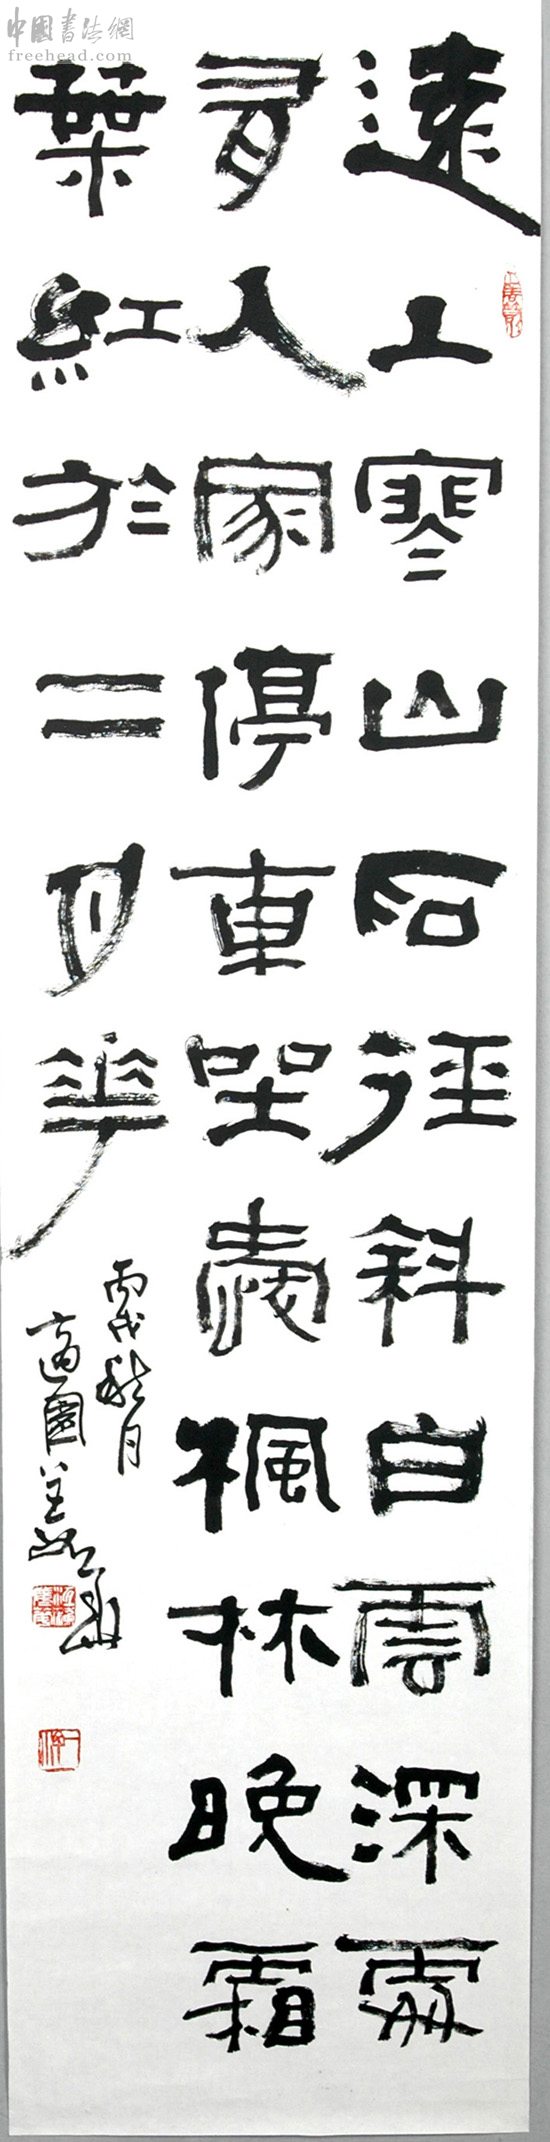 中國書法網
freehead.com
遠上寒山石徑斜白雲深處
有人家停車坐愛楓林晚霜
葉紅於二月華
丙戌秋月
適園